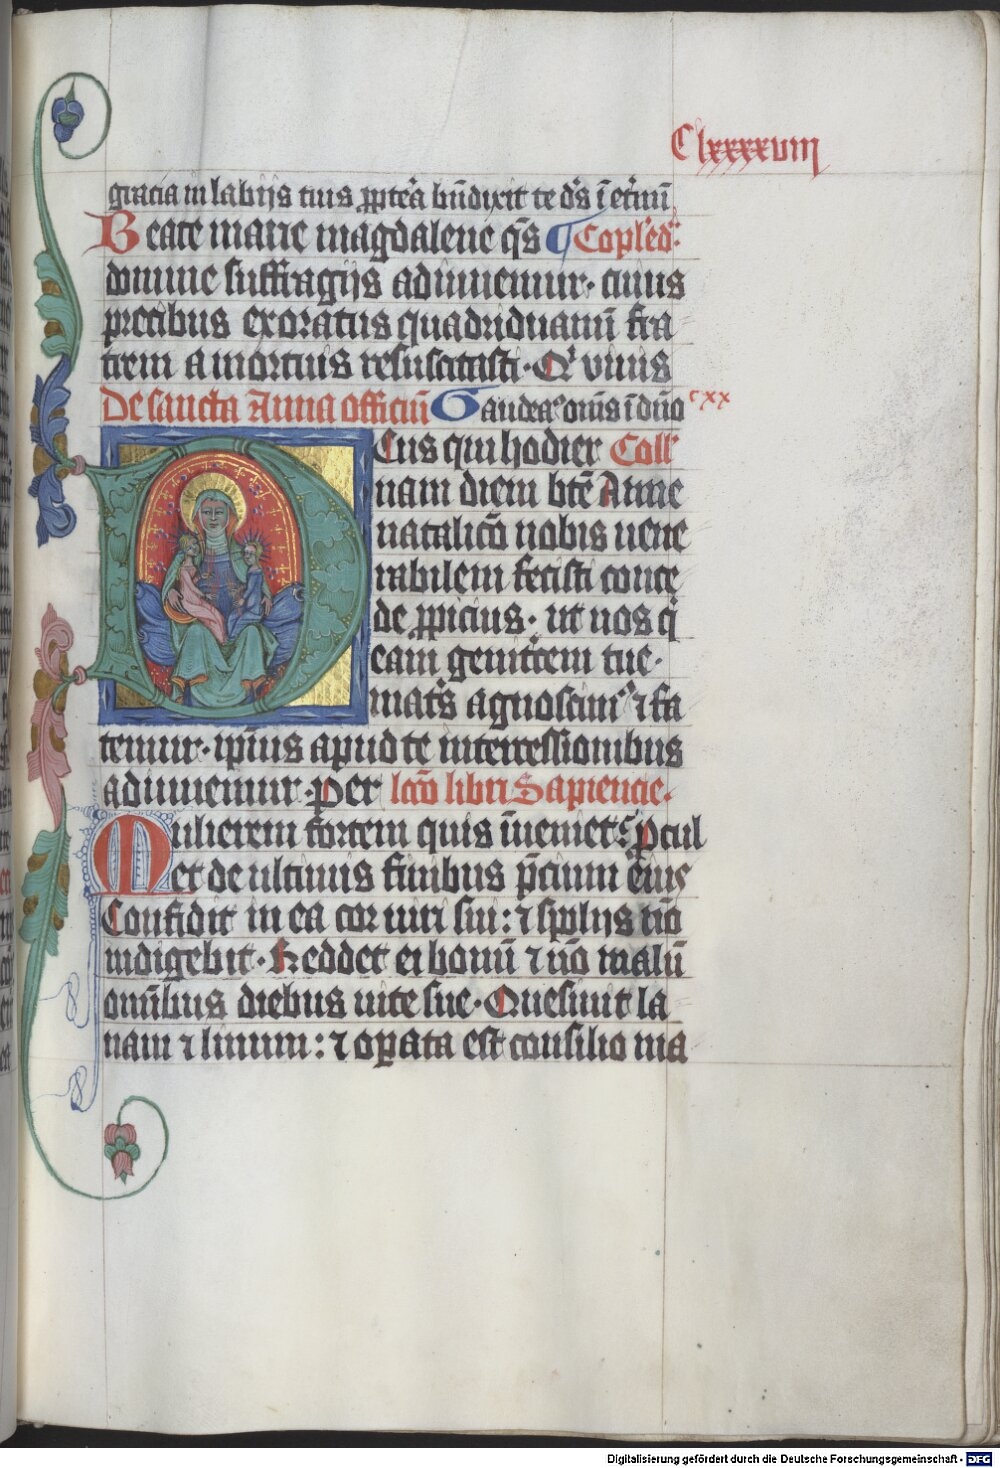 Clxxxxviij
gracia in labijs tuis ꝓpt̄ea bn̄dixit te dſ̄ ī et̄nū
Beate marie magdalene qſ̄ ¶ Cōpl'ed'
domine suffragijs adiuuemur· cuius
precibus exoratus quadriduanū fra
trem a mortuis resuscitasti· Qͥ viuis
De sancta Anna officiū Gaudeaꝰ om̄s ī dn̄o cxx
Deus qui hodier Coll'
nam diem btē Anne
natalicō nobis uene
rabilem fecisti conce
de ꝓpicius· ut nos qͥ
eam genit̄cem tue
mat̄s agnoscimꝰ ⁊ fa
temur· ip̄ius apud te intercessionibus
adiuuemur· per lcō libri Sapiencie·
Mulierem fortem quis īueniet? ꝓcul
et de ultimis finibus p̄cium eius
Confidit in ea cor uiri sui: ⁊ spolijs nō
indigebit· Reddet ei bonū ⁊ nō malū
omībus diebus uite sue· Quesiuit la
nam ⁊ linum: ⁊ oꝑata est consilio ma
Digitalisierung gefördert durch die Deutsche Forschungsgemeinschaft - DFG